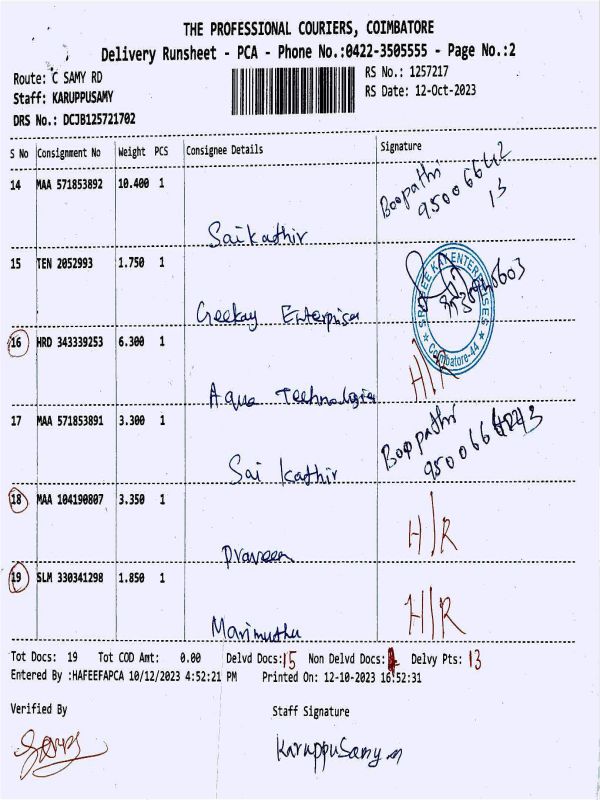 THE PROFESSIONAL COURIERS, COIMBATORE
Delivery Runsheet - PCA - Phone No.:0422-3505555 - Page No.:2
Route: C SAMY RD
RS No.: 1257217
Staff: KARUPPUSAMY
RS Date: 12-Oct-2023
DRS No.: DCJB125721702
S No Consignment No Weight PCS Consignee Details Signature
14 MAA 571853892 10.400 1
Boopathi
95006642
13
Saikathir
15 TEN 2052993 1.750 1
Geekay Enterprises
SREE KAY ENTERPRISES
Coimbatore-44
16 HRD 343339253 6.300 1
Aqua Technologies H/R
17 MAA 571853891 3.300 1
Boopathi
Sai Kathir
18 MAA 104190807 3.350 1
Praveen H/R
19 SLM 330341298 1.850 1
Marimuthu H/R
Tot Docs: 19 Tot COD Amt: 0.00 Delvd Docs: 15 Non Delvd Docs: Delvy Pts: 13
Entered By :HAFEEFAPCA 10/12/2023 4:52:21 PM Printed On: 12-10-2023 16:52:31
Verified By Staff Signature
KaruppuSamy.m